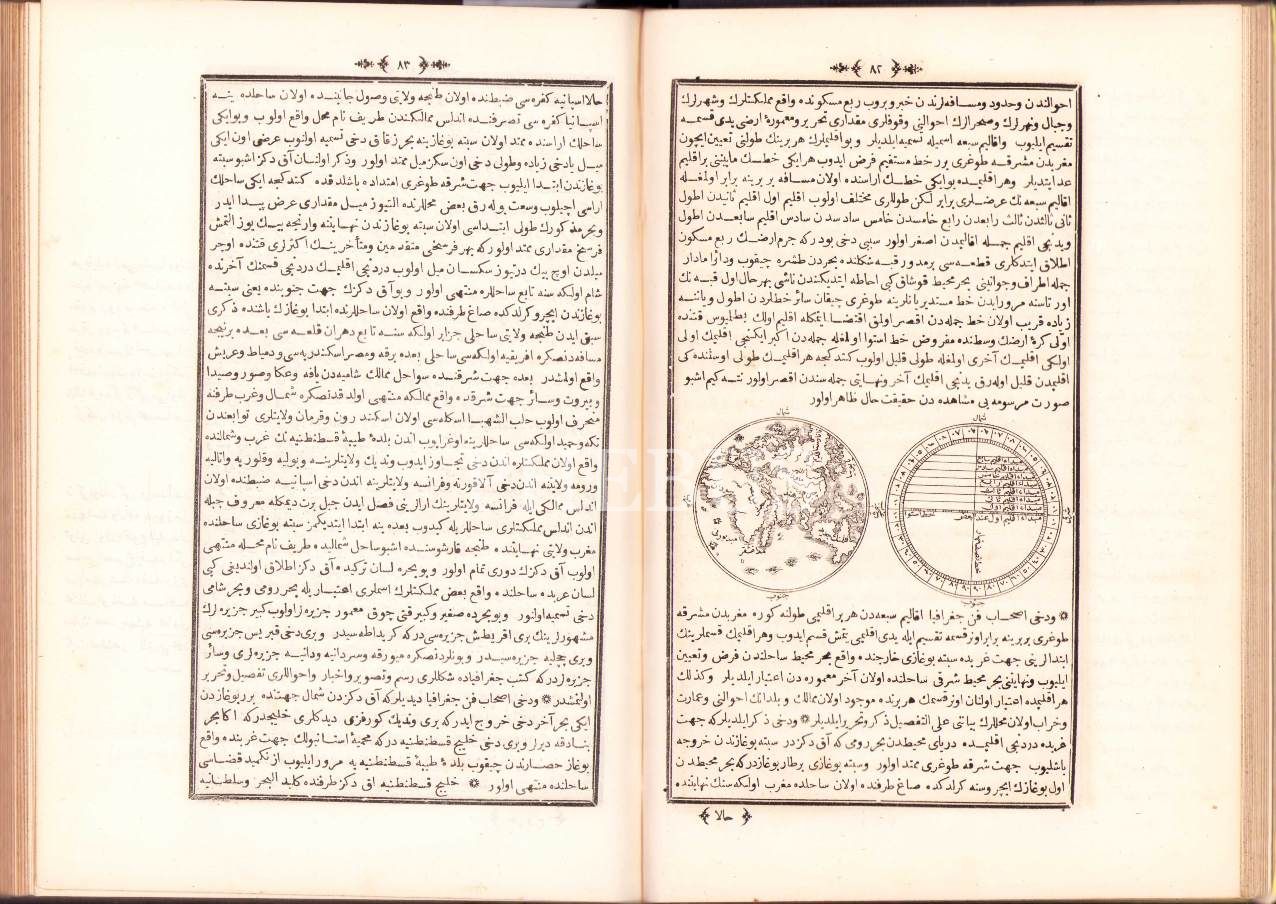 ٨٢
احوالندن وحدود ومسافه لرندن خبر ويروب ربع مسكونده واقع مملكتلرك وشهرلرك
وجبال ونهرلرك وصحرالرك احوالنى وقوفلرى مقدارى تحرير ومعمورۀ ارضى يدى قسمه
تقسيم ايليوب واقاليم سبعه اسميله تسميه ايلديلر وبو اقليملرك هر برينك طولنى تعيين ايچون
مغربدن مشرقه طوغرى بر خط مستقيم فرض ايدوب هر ايكى خطك مابينى بر اقليم
عد ايتديلر وهر اقليمده بو ايكى خطك اراسنده اولان مسافه بر برينه برابر اولمغله
اقاليم سبعه نك عرضلرى برابر لكن طوللرى مختلف اولوب اقليم اول اقليم ثانيدن اطول
ثانى ثالثدن ثالث رابعدن رابع خامسدن خامس سادسدن سادس اقليم سابعدن اطول
ويدنجى اقليم جمله اقاليمدن اصغر اولور سببى دخى بودركه جرم ارضك ربع مسكون
اطلاق ايتدكلرى قطعه سى بر مدور قبه شكلنده بحردن طشره چيقوب ودائرا مادار
جمله اطراف وجوانبنى بحر محيط قوشاق كبى احاطه ايتديكندن ناشى بهر حال اول قبه نك
اورتاسنه مرور ايدن خط مستدير يانلرينه طوغرى چيقان سائر خطلردن اطول ويانه
زياده قريب اولان خط جمله دن اقصر اولمق اقتضا ايتمكله اقليم اولك بطلميوس قتنده
اولى كرۀ ارضك وسطنده مفروض خط استوا اولمغله جمله دن اكبر ايكنجى اقليمك اولى
اولكى اقليمك آخرى اولمغله طولى قليل اولوب كتدكجه هر اقليمك طولى اوستنده كى
اقليمدن قليل اوله رق يدنجى اقليمك آخر ونهايتى جمله سندن اقصر اولور نته كيم اشبو
صورت مرسومه يى مشاهده دن حقيقت حال ظاهر اولور
شمال
شمال
جنوب
جنوب
❊ ودخى اصحاب فن جغرافيا اقاليم سبعه دن هر بر اقليمى طولنه كوره مغربدن مشرقه
طوغرى بر برينه برابر اون قسمه تقسيم ايله يدى اقليمى يتمش قسم ايدوب وهر اقليمك قسملرينك
ابتدالرينى جهت غربده سبته بوغازى خارجنده واقع بحر محيط ساحلندن فرض وتعيين
ايليوب ونهايتنى بحر محيط شرقى ساحلنده اولان آخر معموره دن اعتبار ايلديلر وكذلك
هر اقليمده اعتبار اولنان اون قسمك هر برنده موجود اولان ممالك وبلدانك احوالنى وعمارت
وخراب اولان محللرك بياننى على التفصيل ذكر وتحرير ايلديلر ❊ ودخى ذكر ايلديلركه جهت
غربده دردنجى اقليمده درياى محيطدن بحر رومى كه آق دكزدر سبته بوغازندن خروجه
باشليوب جهت شرقه طوغرى ممتد اولور وسبته بوغازى بر طار بوغازدركه بحر محيطدن
اول بوغازك ايچروسنه كرلدكده صاغ طرفنده اولان ساحلده مغرب اولكه سنك نهايتنده
حالا
٨٣
حالا اسپانيه كفره سى ضبطنده اولان طنجه ولايتى وصول جانبنده اولان ساحلده ينه
اسپانيا كفره سى تصرفنده اندلس ممالكندن طريف نام محل واقع اولوب وبو ايكى
ساحلك اراسنده ممتد اولان سبته بوغازينه بحر زقاق دخى تسميه اولنوب عرضى اون ايكى
ميل ياخود زياده وطولى دخى اون سكز ميل ممتد اولور وذكر اولنان آق دكز اشبو سبته
بوغازندن ابتدا ايليوب جهت شرقه طوغرى امتداده باشلدقده كتدكجه ايكى ساحلك
اراسى اچيلوب وسعت بوله رق بعض محللرنده التيوز ميل مقدارى عرض پيدا ايدر
وبحر مذكورك طولى ابتداسى اولان سبته بوغازندن نهايتنه وارنجه بيك يوز التمش
فرسخ مقدارى ممتد اولوركه بهر فرسخى متقدمين ومتأخرينك اكثرى قتنده اوچر
ميلدن اوچ بيك درتيوز سكسان ميل اولوب دردنجى اقليمك دردنجى قسمنك آخرنده
شام اولكه سنه تابع ساحللره منتهى اولور وبو آق دكزك جهت جنوبنده يعنى سبته
بوغازندن ايچرو كرلدكده صاغ طرفنده واقع اولان ساحللرنده ابتدا بوغازك باشنده ذكرى
سبق ايدن طنجه ولايتى ساحلى جزاير اولكه سنه تابع دهران قلعه سى بعده برنيجه
مسافه دنصكره افريقيه اولكه سى ساحلى بعده برقه ومصر اسكندريه سى ودمياط وعريش
واقع اولمشدر بعده جهت شرقنده سواحل ممالك شاميه دن يافه وعكا وصور وصيدا
وبيروت وسائر جهت شرقده واقع ممالكه منتهى اولدقدنصكره شمال وغرب طرفنه
منحرف اولوب حلب الشهبا اسكله سى اولان اسكندرون وقرمان ولايتلرى توابعندن
تكه وحميد اولكه سى ساحللرينه اوغرايوب اندن بلدۀ طيبۀ قسطنطنيه نك غرب وشمالنده
واقع اولان مملكتلره اندن دخى تجاوز ايدوب ونديك ولايتلرينه وپوليه وقلوريه وانتاليه
ورومه ولايتنه اندن دخى آلاقورنه وفرانسه ولايتلرينه اندن دخى اسپانيه ضبطنده اولان
اندلس ممالكى ايله فرانسه ولايتلرينك ارالرينى فصل ايدن جبل برت ديمكله معروف جبله
اندن اندلس مملكتلرى ساحللريله كيدوب بعده ينه ابتدا ايتديكمز سبته بوغازى ساحلنده
مغرب ولايتى نهايتنده طنجه قارشوسنده اشبو ساحل شماليده طريف نام محله منتهى
اولوب آق دكزك دورى تمام اولور وبو بحره لسان تركيده آق دكز اطلاق اولنديغى كبى
لسان عربده ساحلنده واقع بعض مملكتلرك اسملرى اعتباريله بحر رومى وبحر شامى
دخى تسميه اولنور وبو بحرده صغير وكبير قتى چوق معمور جزيره لر اولوب كبير جزيره لرك
مشهورلرينك برى اقريطش جزيره سى دركه كريد اطه سيدر وبرى دخى قبريس جزيره سى
وبرى چچليه جزيره سيدر وبونلردنصكره ميورقه وسردانيه ودانيه جزيره لرى وسائر
جزيره لردركه كتب جغرافياده شكللرى رسم وتصوير واخبار واحواللرى تفصيل وتحرير
اولنمشدر ❊ ودخى اصحاب فن جغرافيا ديديلركه آق دكزدن شمال جهتنده برر بوغازدن
ايكى بحر آخر دخى خروج ايدركه برى ونديك كورفزى ديدكلرى خليجدركه اكا بحر
بنادقه ديرلر وبرى دخى خليج قسطنطنيه دركه محميۀ استانبولك جهت غربنده واقع
بوغاز حصارندن چيقوب بلدۀ طيبۀ قسطنطنيه يه مرور ايليوب ازنكميد قضاسى
ساحلنده منتهى اولور ❊ خليج قسطنطنيه اق دكز طرفنده كليد البحر وسلطانيه